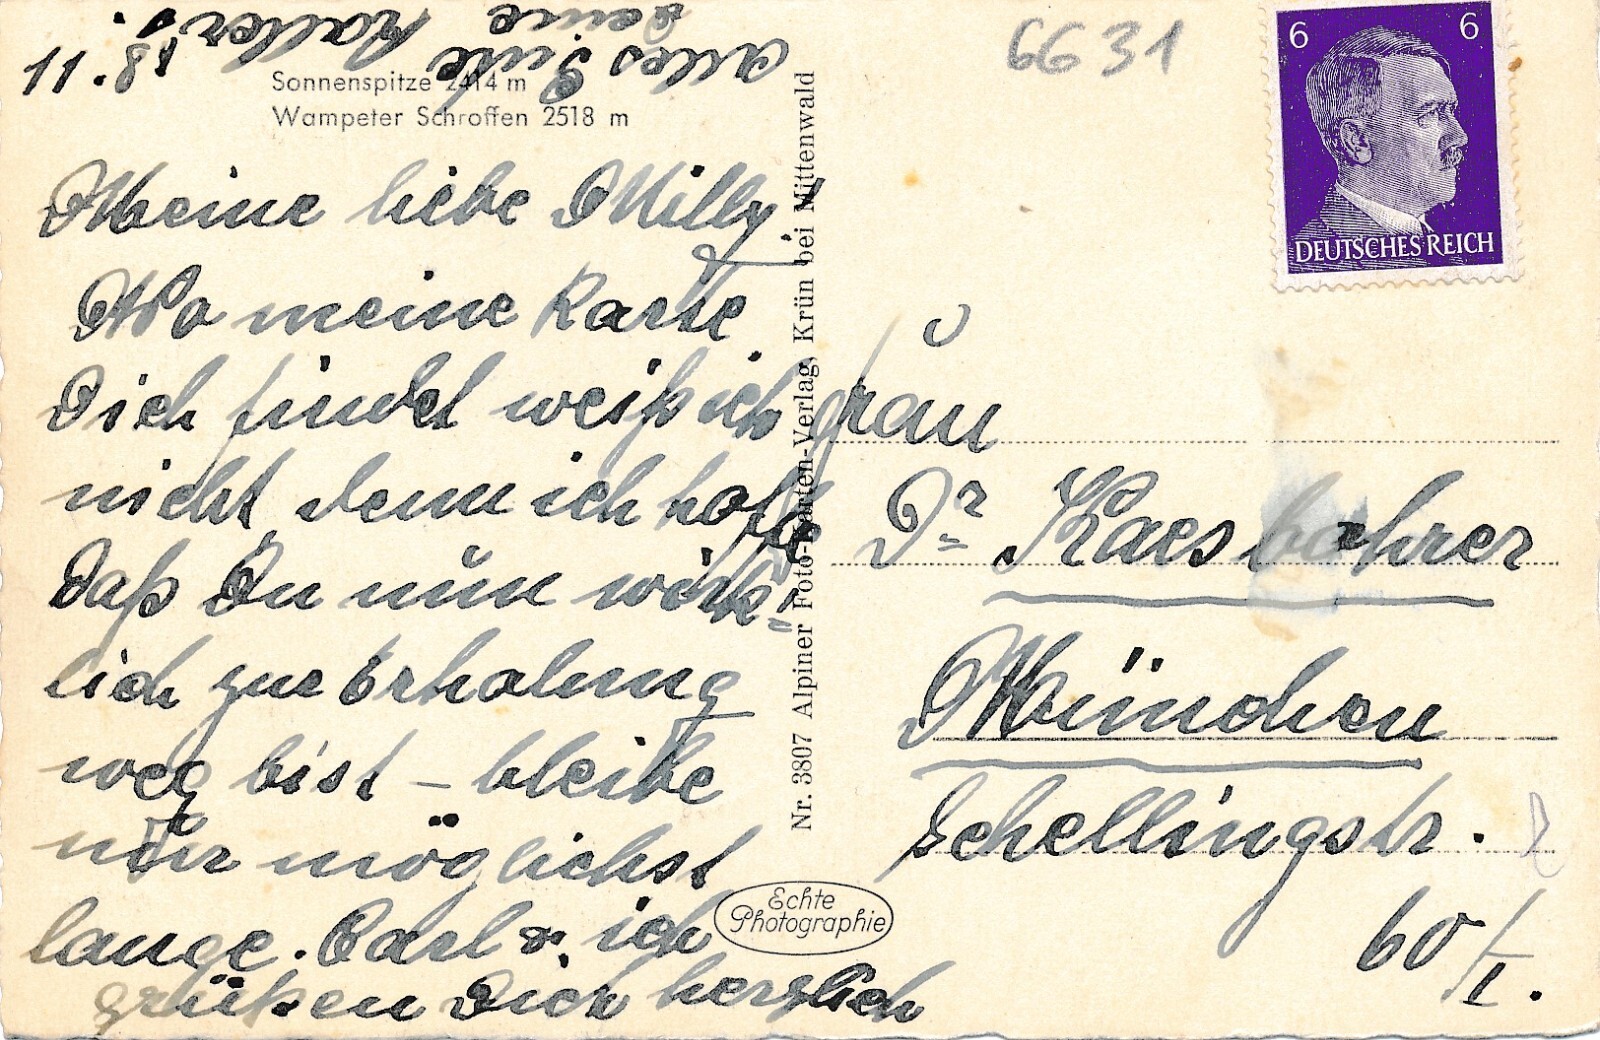 Sonnenspitze 2414 m
Wampeter Schroffen 2518 m
Meine liebe Milly!
Wo meine Karte
Dich findet weiß ich
nicht, denn ich hoffe
daß Du nun wirk=
lich zur Erholung
weg bist – bleibe
nur möglichst
lange. Carl u. ich
grüßen Dich herzlich
Alles Gute
Deine
11. 8.
Nr. 3807 Alpiner Foto-Karten-Verlag, Krün bei Mittenwald
Echte
Photographie
6631
6 6
DEUTSCHES REICH
Frau
Dr Kaesbohrer
München
Schellingstr.
60/I.